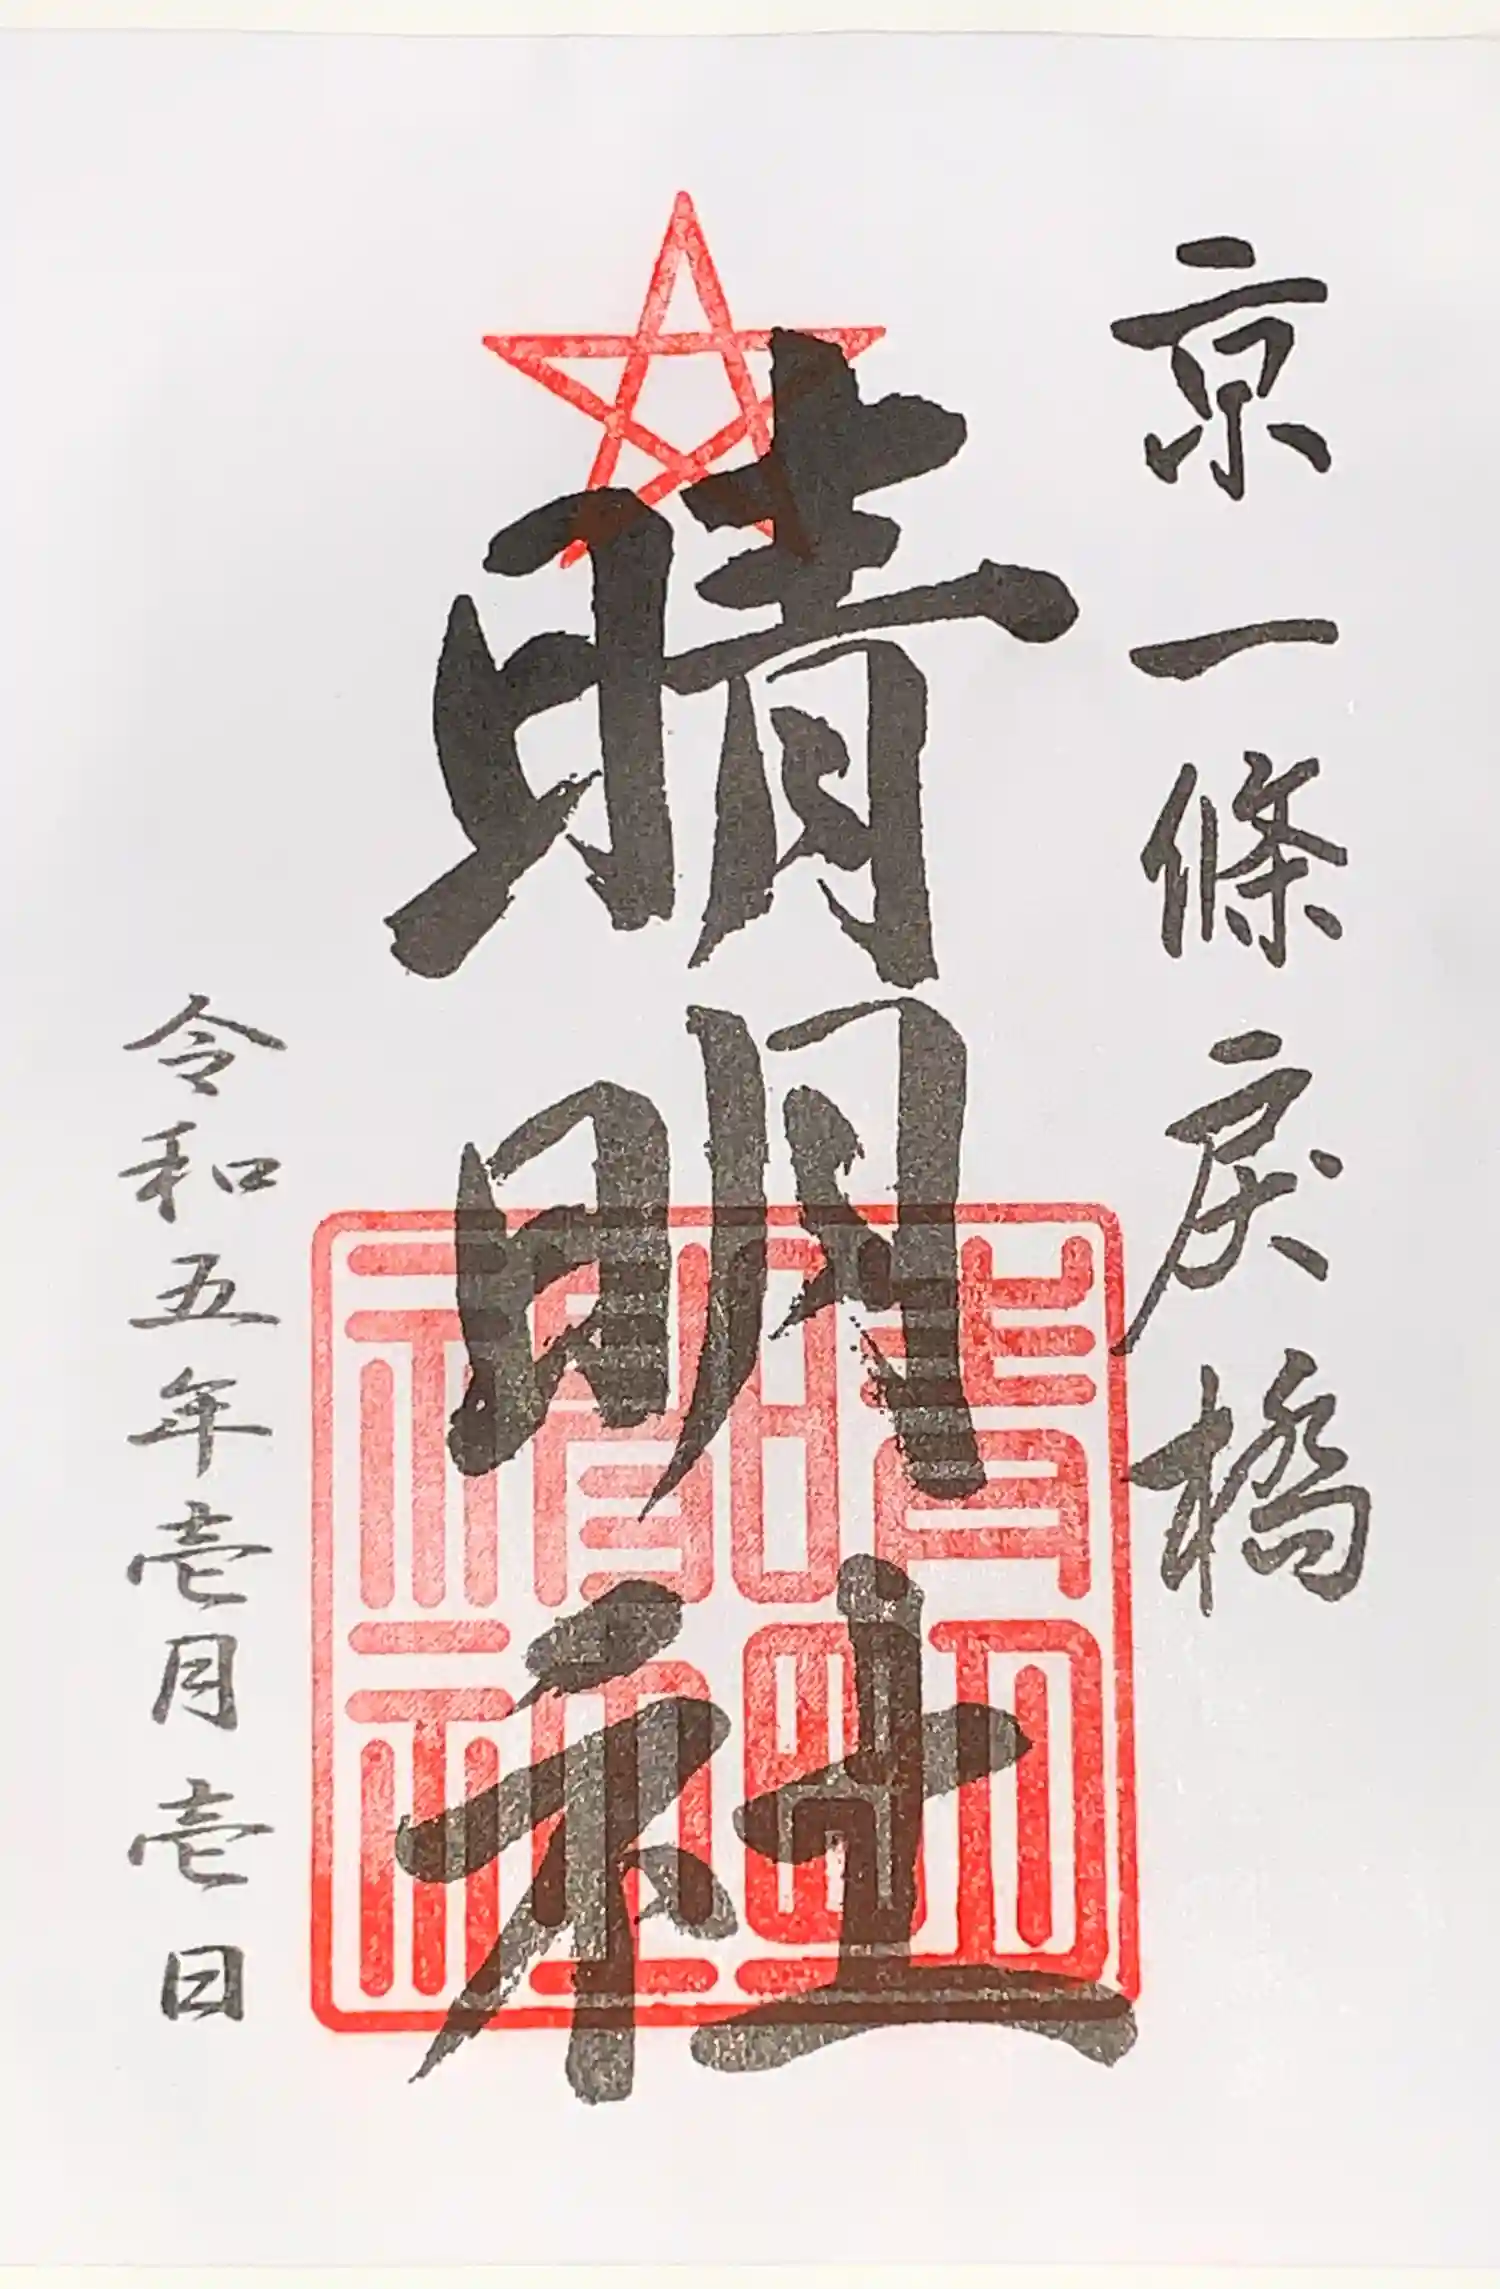 京一條戻橋
晴明社
令和五年壱月壱日